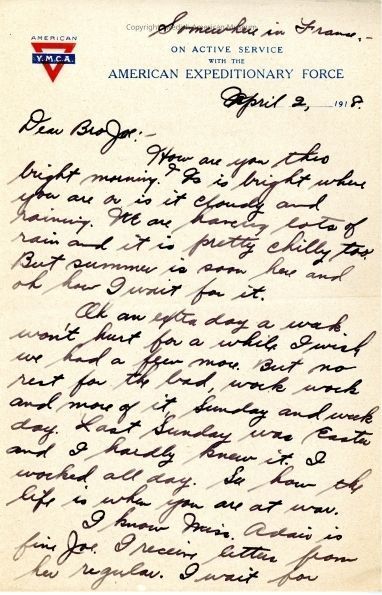 Copyright Swedish American Museum
Somewhere in France.-
AMERICAN
Y.M.C.A.
ON ACTIVE SERVICE
WITH THE
AMERICAN EXPEDITIONARY FORCE
April 2, 1918.
Dear Bro Joe:-
How are you this
bright morning? Is is bright where
you are or is it cloudy and
raining. We are having lots of
rain and it is pretty chilly too.
But summer is soon here and
oh how I wait for it.
Oh an extra day a week
won't hurt for a while I wish
we had a few more. But no
rest for the bad, work work
and more of it, Sunday and week
day. Last Sunday was Easter
and I hardly knew it. I
worked all day. See how the
life is when you are at war.
I know Miss. Adair is
fine Joe. I receive letters from
her regular. I wait for